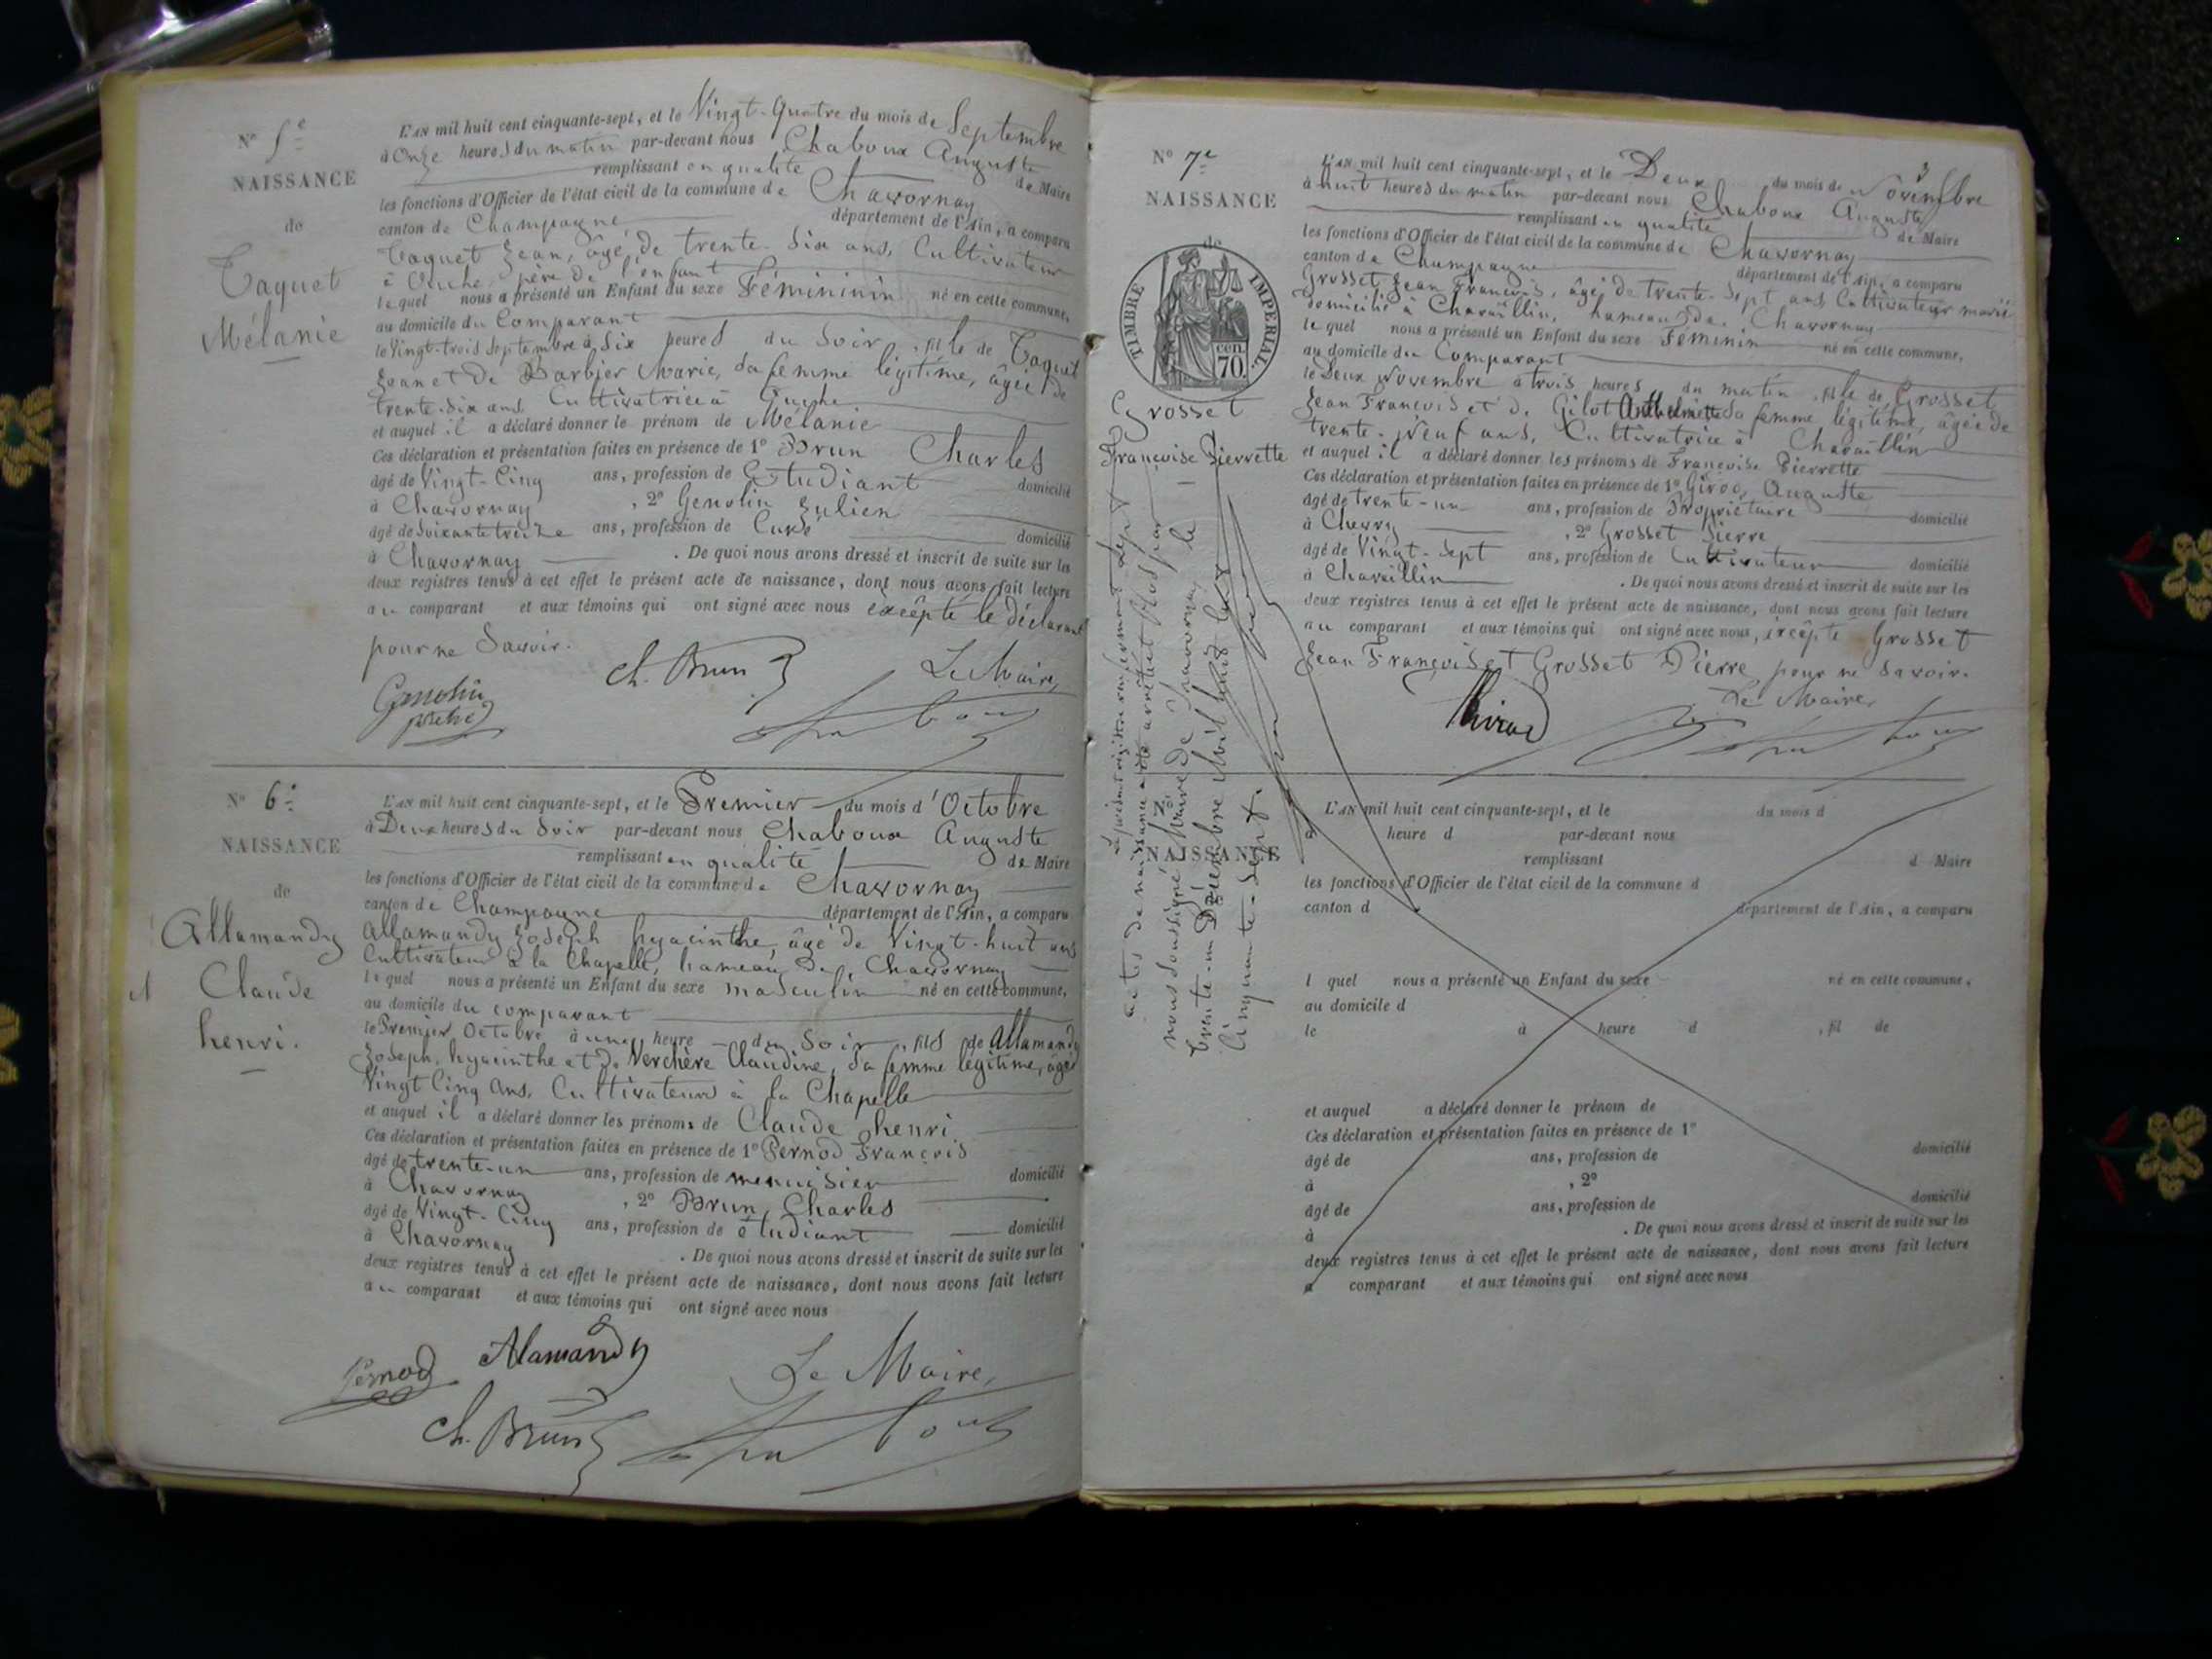 N° 5e
NAISSANCE
de
Taquet
Mélanie
L'AN mil huit cent cinquante-sept, et le Vingt-Quatre du mois de Septembre
à Onze heures du matin par-devant nous Chaboux Auguste
remplissant en qualité de Maire
les fonctions d'Officier de l'état civil de la commune de Chavornay
canton de Champagne département de l'Ain, a comparu
Taquet Jean, âgé de trente-Six ans, Cultivateur
à Ouche, père de l'enfant
lequel nous a présenté un Enfant du sexe Fémininin né en cette commune,
au domicile du Comparant
le Vingt-trois Septembre à Six heures du Soir, fille de Taquet
Jean et de Barbier Marie, sa femme légitime, âgée de
trente-Six ans Cultivatrice à Ouche
et auquel il a déclaré donner le prénom de Mélanie
Ces déclaration et présentation faites en présence de 1° Brun Charles
âgé de Vingt-Cinq ans, profession de Etudiant domicilié
à Chavornay, 2° Genolin Julien
âgé de Soixante treize ans, profession de Curé domicilié
à Chavornay. De quoi nous avons dressé et inscrit de suite sur les
deux registres tenus à cet effet le présent acte de naissance, dont nous avons fait lecture
au comparant et aux témoins qui ont signé avec nous excêpté le déclarant
pour ne Savoir.
Genolin ch. Brun Le Maire,
N° 6e
NAISSANCE
de
Allamandy
Claude
henri.
L'AN mil huit cent cinquante-sept, et le Premier du mois d'Octobre
à Deux heures du Soir par-devant nous Chaboux Auguste
remplissant en qualité de Maire
les fonctions d'Officier de l'état civil de la commune de Chavornay
canton de Champagne département de l'Ain, a comparu
Allamandy Joseph hyacinthe, âgé de Vingt-huit ans
Cultivateur à la Chapelle, hameau de Chavornay
lequel nous a présenté un Enfant du sexe masculin né en cette commune,
au domicile du comparant
le Premier Octobre à une heure du Soir, fils de Allamandy
Joseph hyacinthe et de Verchère Claudine, Sa femme légitime, âgée
Vingt Cinq ans, Cultivateurs à la Chapelle
et auquel il a déclaré donner les prénoms de Claude henri
Ces déclaration et présentation faites en présence de 1° Pernod François
âgé de trente-un ans, profession de menuisier domicilié
à Chavornay, 2° Brun, Charles
âgé de Vingt-Cinq ans, profession de étudiant domicilié
à Chavornay. De quoi nous avons dressé et inscrit de suite sur les
deux registres tenus à cet effet le présent acte de naissance, dont nous avons fait lecture
au comparant et aux témoins qui ont signé avec nous
Pernod Alamandy Le Maire,
ch. Brun
N° 7e
NAISSANCE
de
TIMBRE IMPERIAL.
70 cen.
Grosset
Françoise Pierrette
L'AN mil huit cent cinquante-sept, et le Deux du mois de Novembre
à huit heures du matin par-devant nous Chaboux Auguste
remplissant en qualité de Maire
les fonctions d'Officier de l'état civil de la commune de Chavornay
canton de Champagne département de l'Ain, a comparu
Grosset Jean François, âgé de trente-Sept ans Cultivateur marié
domicilié à Charaillin, hameau de Chavornay
lequel nous a présenté un Enfant du sexe Féminin né en cette commune,
au domicile du Comparant
le Deux Novembre à trois heures du matin, fille de Grosset
Jean François et de Gilot Anthelmette Sa femme légitime, âgée de
trente-Neuf ans, Cultivatrice à Charaillin
et auquel il a déclaré donner les prénoms de Françoise Pierrette
Ces déclaration et présentation faites en présence de 1° Girod, Auguste
âgé de trente-un ans, profession de Propriétaire domicilié
à , 2° Grosset Pierre
âgé de Vingt-Sept ans, profession de Cultivateur domicilié
à Charaillin. De quoi nous avons dressé et inscrit de suite sur les
deux registres tenus à cet effet le présent acte de naissance, dont nous avons fait lecture
au comparant et aux témoins qui ont signé avec nous, excêpté Grosset
Jean François et Grosset Pierre pour ne Savoir.
Girod Le Maire,
le présent registre renfermant Sept
actes de naissance a été arrêté et clos par
nous soussigné Maire de Chavornay le
trente-un Décembre Mil huit cent
Cinquante-Sept.
N°
NAISSANCE
L'AN mil huit cent cinquante-sept, et le du mois d
à heure d par-devant nous
remplissant d Maire
les fonctions d'Officier de l'état civil de la commune d
canton d département de l'Ain, a comparu
l quel nous a présenté un Enfant du sexe né en cette commune,
au domicile d
le à heure d , fil de
et auquel a déclaré donner le prénom de
Ces déclaration et présentation faites en présence de 1°
âgé de ans, profession de domicilié
à , 2°
âgé de ans, profession de domicilié
à . De quoi nous avons dressé et inscrit de suite sur les
deux registres tenus à cet effet le présent acte de naissance, dont nous avons fait lecture
a comparant et aux témoins qui ont signé avec nous